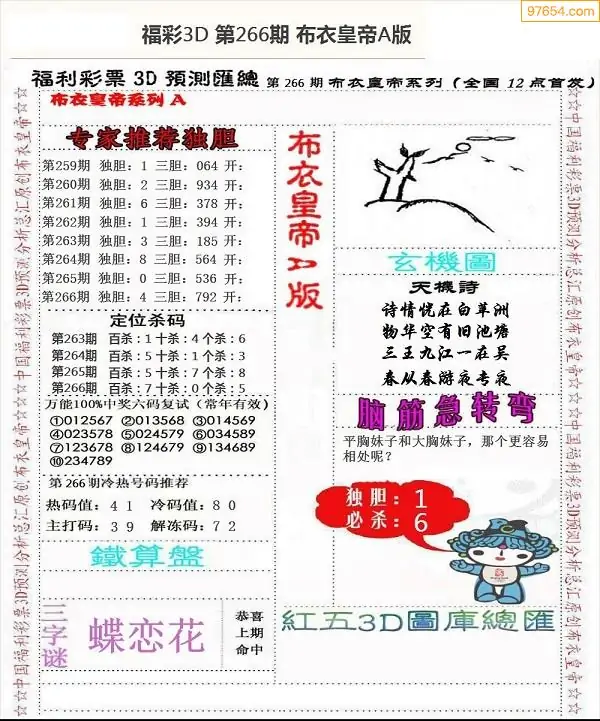 97654.com
福彩3D 第266期 布衣皇帝A版
福利彩票 3D 預測匯總 第 266 期 布衣皇帝系列 (全国 12 点首发)
布衣皇帝系列 A
专家推荐独胆
第259期 独胆: 1 三胆: 064 开:
第260期 独胆: 2 三胆: 934 开:
第261期 独胆: 6 三胆: 378 开:
第262期 独胆: 1 三胆: 394 开:
第263期 独胆: 3 三胆: 185 开:
第264期 独胆: 8 三胆: 564 开:
第265期 独胆: 0 三胆: 536 开:
第266期 独胆: 4 三胆: 792 开:
定位杀码
第263期 百杀: 1 十杀: 4 个杀: 6
第264期 百杀: 5 十杀: 1 个杀: 3
第265期 百杀: 5 十杀: 7 个杀: 8
第266期 百杀: 7 十杀: 0 个杀: 5
万能100%中奖六码复试 (常年有效)
①012567 ②013568 ③014569
④023578 ⑤024579 ⑥034589
⑦123678 ⑧124679 ⑨134689
⑩234789
第 266期冷热号码推荐
热码值: 4 1 冷码值: 8 0
主打码: 3 9 解冻码: 7 2
鐵算盤
三字谜
蝶恋花
恭喜
上期
命中
布衣皇帝A版
玄機圖
天機詩
诗情恍在白苹洲
物华空有旧池塘
三王九江一在吴
春从春游夜专夜
脑筋急转弯
平胸妹子和大胸妹子，那个更容易
相处呢?
独胆: 1
必杀: 6
紅五3D圖庫總匯
☆☆中国福利彩票3D预测分析总汇原创布衣皇帝☆☆☆中国福利彩票3D预测分析总汇原创布衣皇帝☆☆
☆☆中国福利彩票3D预测分析总汇原创布衣皇帝☆☆☆中国福利彩票3D预测分析总汇原创布衣皇帝☆☆